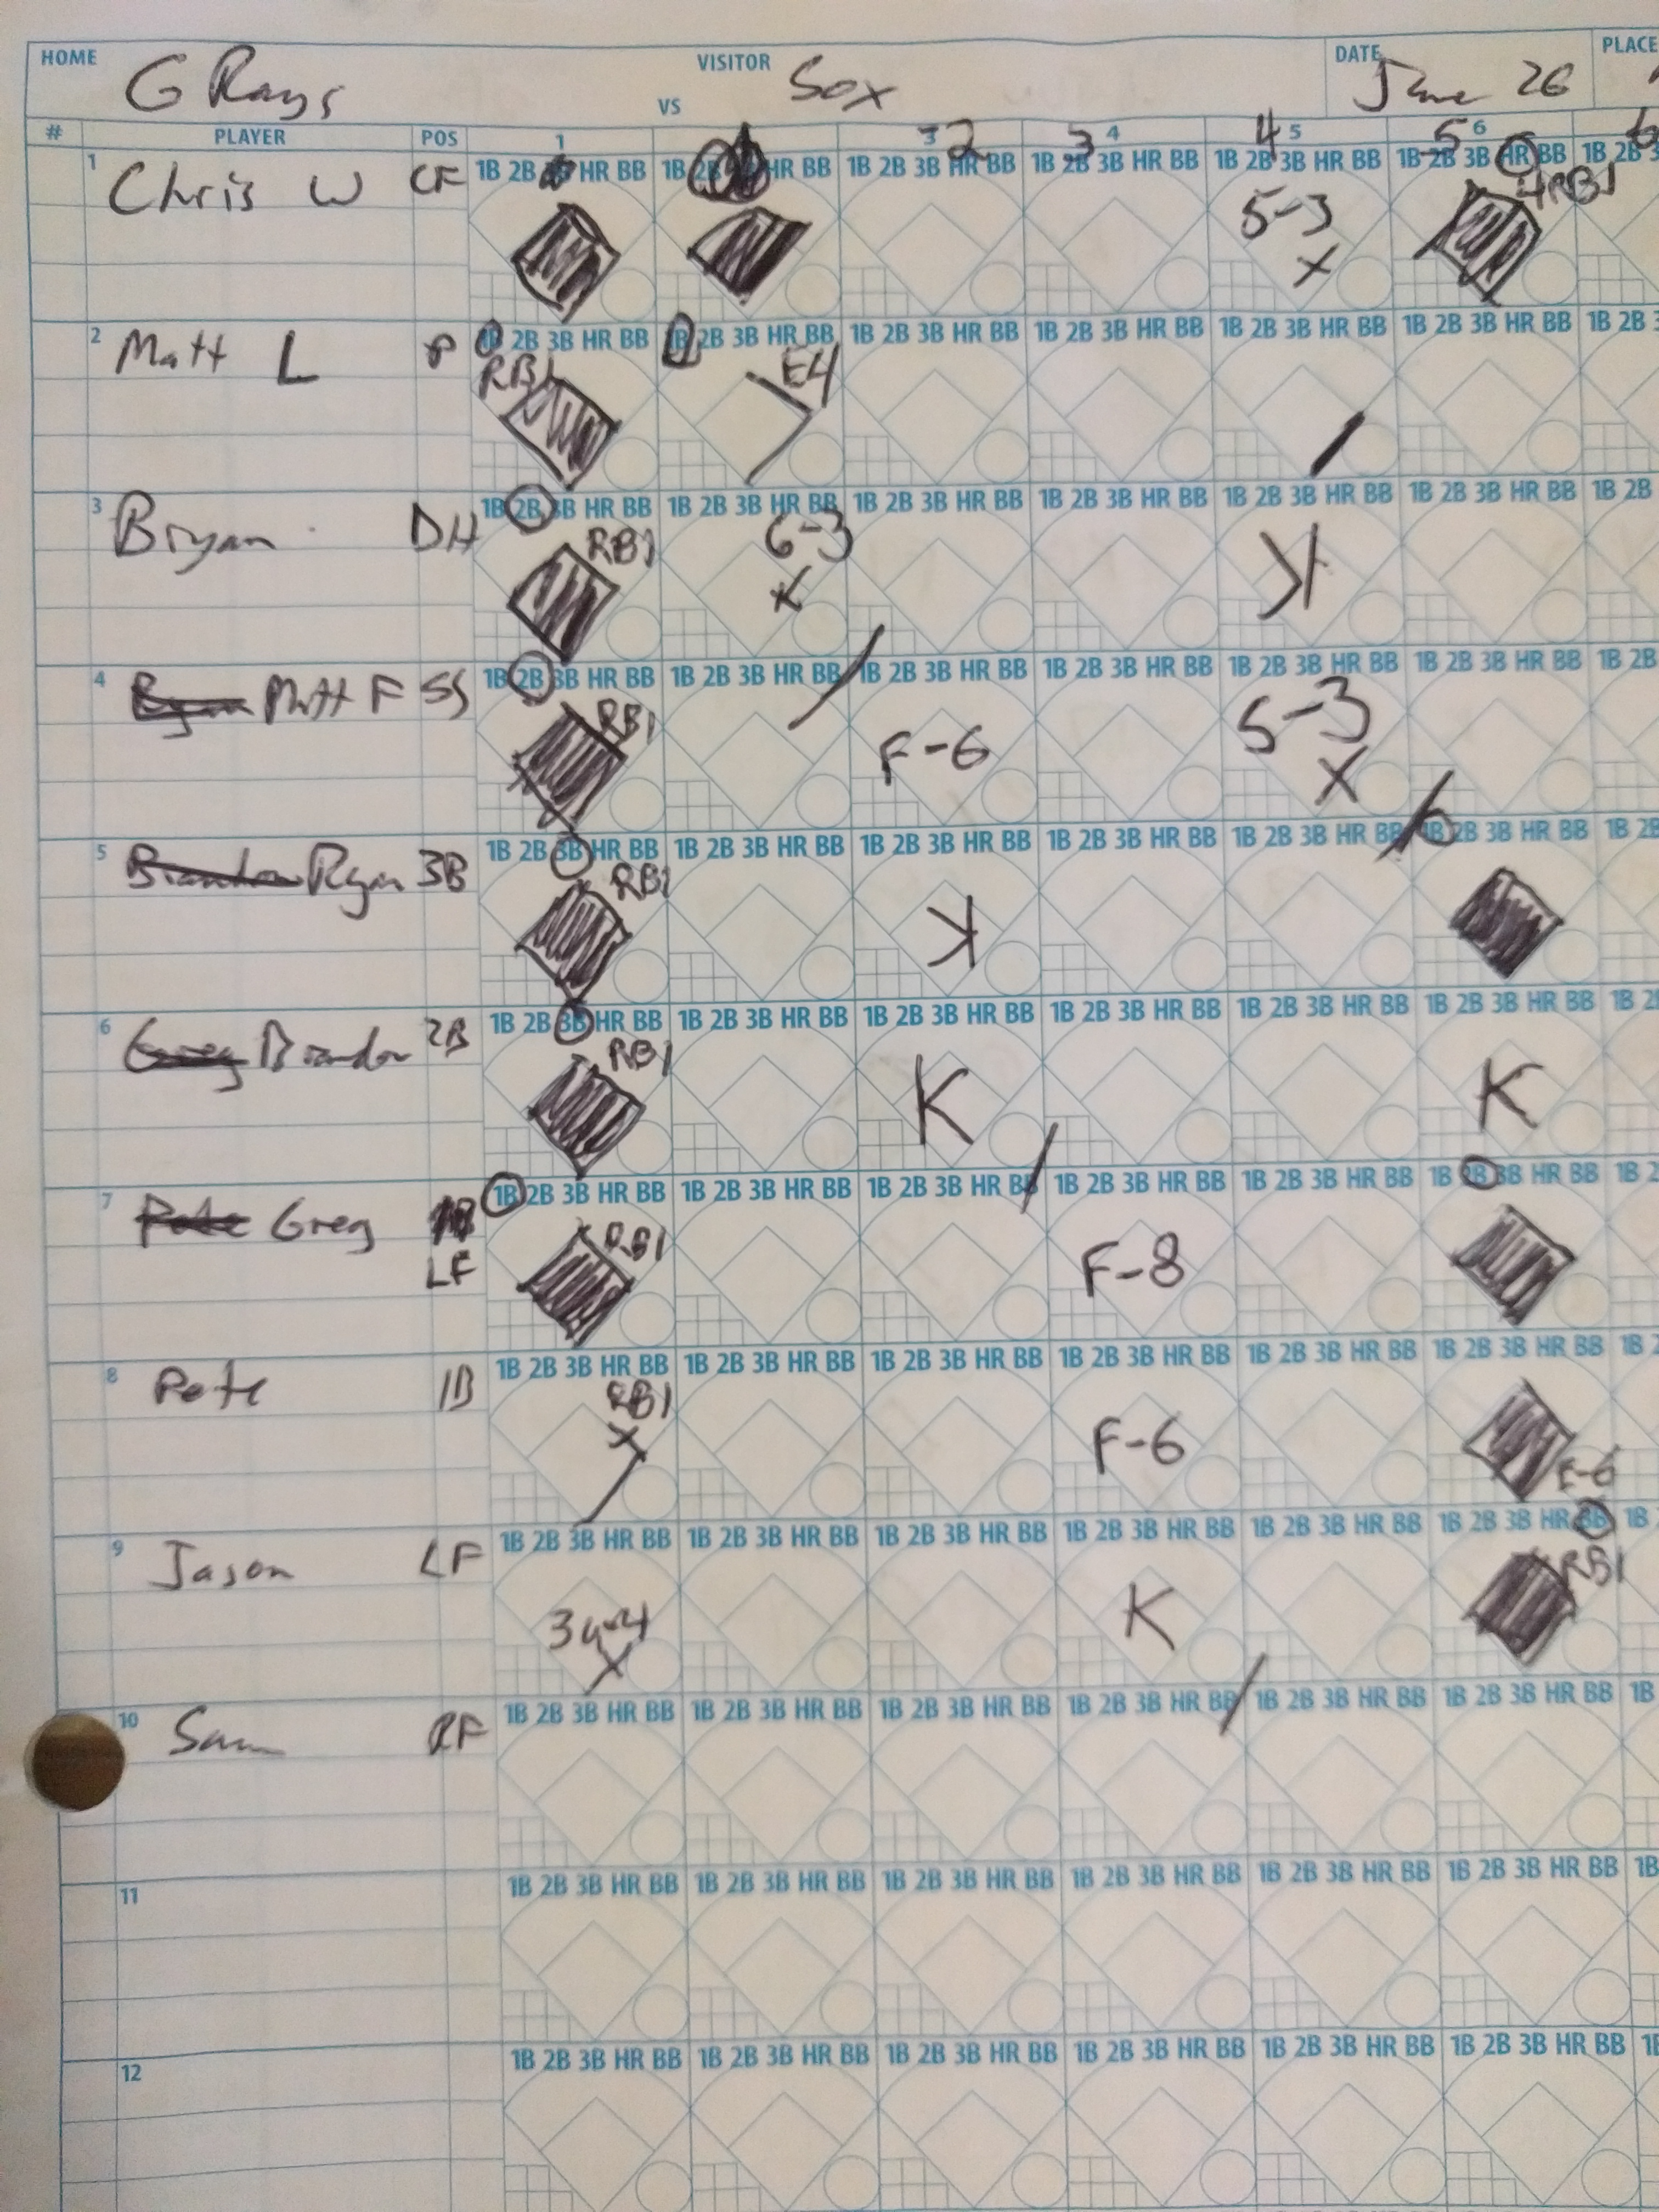 HOME G Rays VS VISITOR Sox DATE June 26 PLACE
# PLAYER POS 1 3 2 4 3 5 4 6 5 6
1 Chris W CF 1B 2B HR BB 1B HR BB 1B 2B 3B HR BB 1B 2B 3B HR BB 1B 2B 3B HR BB 1B 2B 3B HR BB 1B 2B 3
5-3 X 4RBI
2 Matt L P 1B 2B 3B HR BB 1B 2B 3B HR BB 1B 2B 3B HR BB 1B 2B 3B HR BB 1B 2B 3B HR BB 1B 2B 3B HR BB 1B 2B 3
RBI E4
3 Bryan DH 1B 2B 3B HR BB 1B 2B 3B HR BB 1B 2B 3B HR BB 1B 2B 3B HR BB 1B 2B 3B HR BB 1B 2B 3B HR BB 1B 2B
RBI 6-3 X K
4 Matt F SS 1B 2B 3B HR BB 1B 2B 3B HR BB 1B 2B 3B HR BB 1B 2B 3B HR BB 1B 2B 3B HR BB 1B 2B 3B HR BB 1B 2B
RBI F-6 5-3 X
5 Brandon Ryan 3B 1B 2B 3B HR BB 1B 2B 3B HR BB 1B 2B 3B HR BB 1B 2B 3B HR BB 1B 2B 3B HR BB 1B 2B 3B HR BB 1B 2B
RBI K
6 Greg Brandon 2B 1B 2B 3B HR BB 1B 2B 3B HR BB 1B 2B 3B HR BB 1B 2B 3B HR BB 1B 2B 3B HR BB 1B 2B 3B HR BB 1B 2
RBI K K
7 Pete Greg 1B 1B 2B 3B HR BB 1B 2B 3B HR BB 1B 2B 3B HR BB 1B 2B 3B HR BB 1B 2B 3B HR BB 1B 2B 3B HR BB 1B 2
LF RBI F-8
8 Pete 1B 1B 2B 3B HR BB 1B 2B 3B HR BB 1B 2B 3B HR BB 1B 2B 3B HR BB 1B 2B 3B HR BB 1B 2B 3B HR BB 1B 2
RBI X F-6 E-6
9 Jason LF 1B 2B 3B HR BB 1B 2B 3B HR BB 1B 2B 3B HR BB 1B 2B 3B HR BB 1B 2B 3B HR BB 1B 2B 3B HR BB 1B
X K RBI
10 Sam RF 1B 2B 3B HR BB 1B 2B 3B HR BB 1B 2B 3B HR BB 1B 2B 3B HR BB 1B 2B 3B HR BB 1B 2B 3B HR BB 1B
11 1B 2B 3B HR BB 1B 2B 3B HR BB 1B 2B 3B HR BB 1B 2B 3B HR BB 1B 2B 3B HR BB 1B 2B 3B HR BB 1B
12 1B 2B 3B HR BB 1B 2B 3B HR BB 1B 2B 3B HR BB 1B 2B 3B HR BB 1B 2B 3B HR BB 1B 2B 3B HR BB 1B